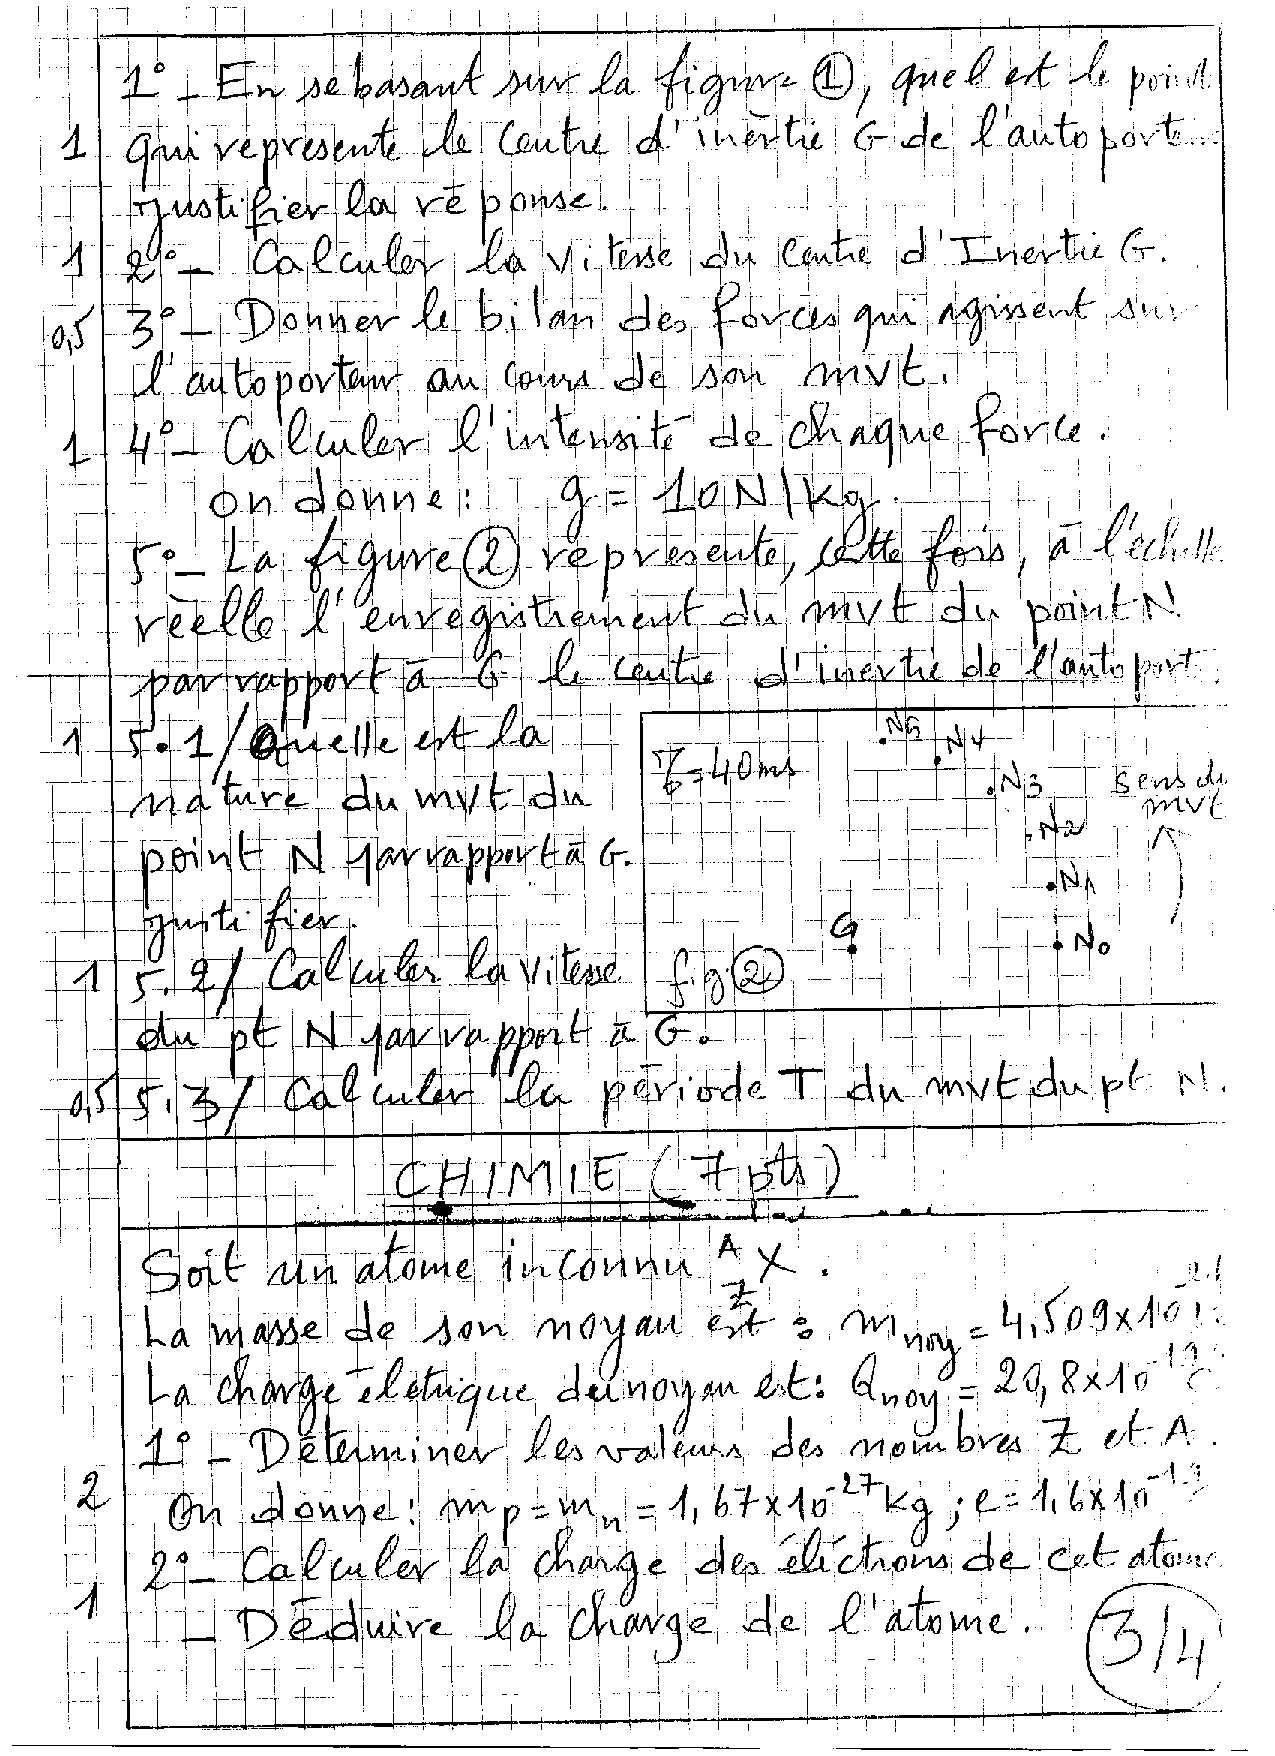 1° - En se basant sur la figure ①, quel est le point
1 qui représente le Centre d'inertie G de l'autoporte...
justifier la réponse.
1 2° - Calculer la vitesse du Centre d'Inertie G.
0,5 3° - Donner le bilan des forces qui agissent sur
l'autoporteur au cours de son mvt.
1 4° - Calculer l'intensité de chaque force.
on donne: g = 10N/kg.
5° - La figure ② représente, cette fois, à l'échelle
réelle l'enregistrement du mvt du point N
par rapport à G le centre d'inertie de l'autoport.
1 5.1/ Quelle est la
nature du mvt du
point N par rapport à G.
justifier.
1 5.2/ Calculer la vitesse
du pt N par rapport à G.
τ = 40ms
N5
N4
N3
N2
N1
N0
G
sens du
mvt
fig ②
0,5 5.3/ Calculer la période T du mvt du pt N.
CHIMIE (7pts)
Soit un atome inconnu ᴬ_Z X.
La masse de son noyau est : m_noy = 4,509x10
La charge életrique du noyau est: Q_noy = 20,8x10⁻¹⁹ C
1° - Déterminer les valeurs des nombres Z et A.
2 On donne: mp = m_n = 1,67x10⁻²⁷ kg ; e = 1,6x10⁻¹⁹
2° - Calculer la charge des éléctrons de cet atome
1 - Déduire la charge de l'atome.
3/4